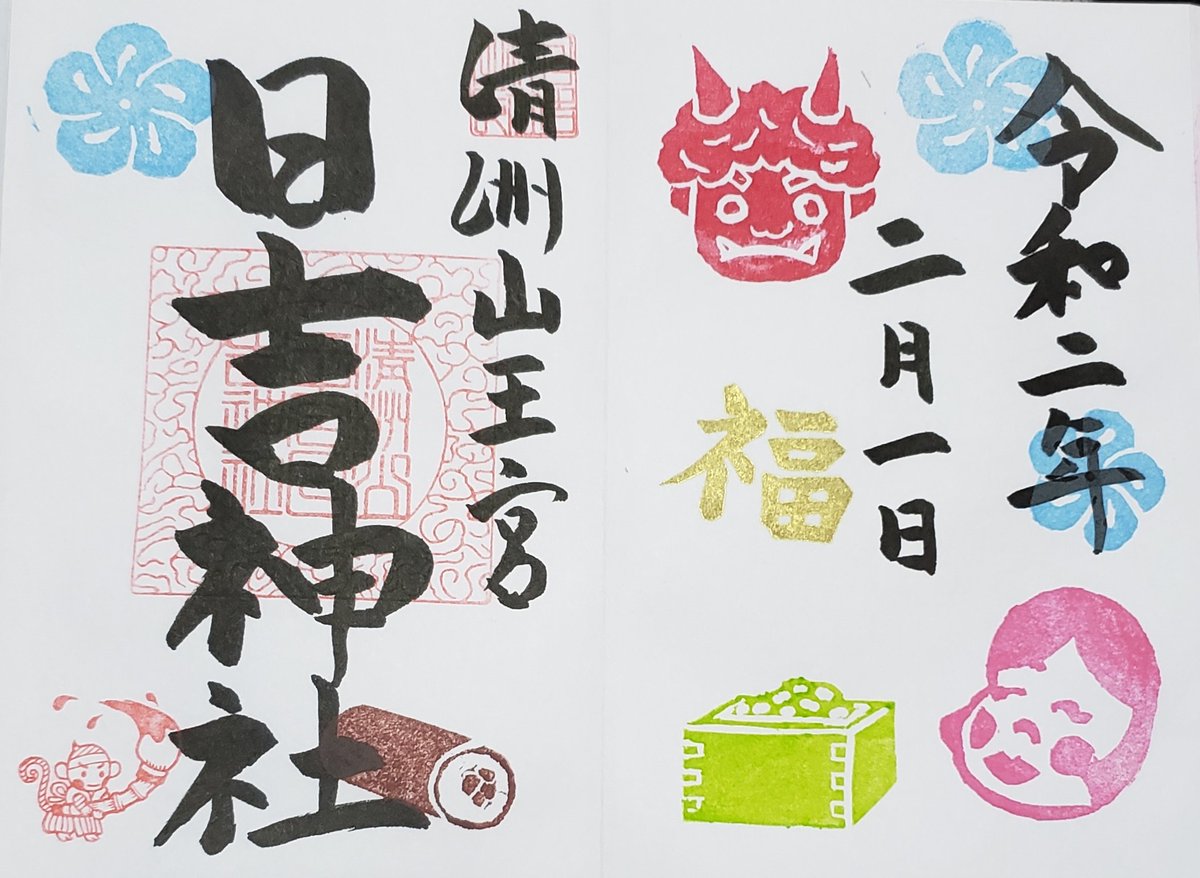 令和二年
二月一日
福
清洲山王宮
日吉神社